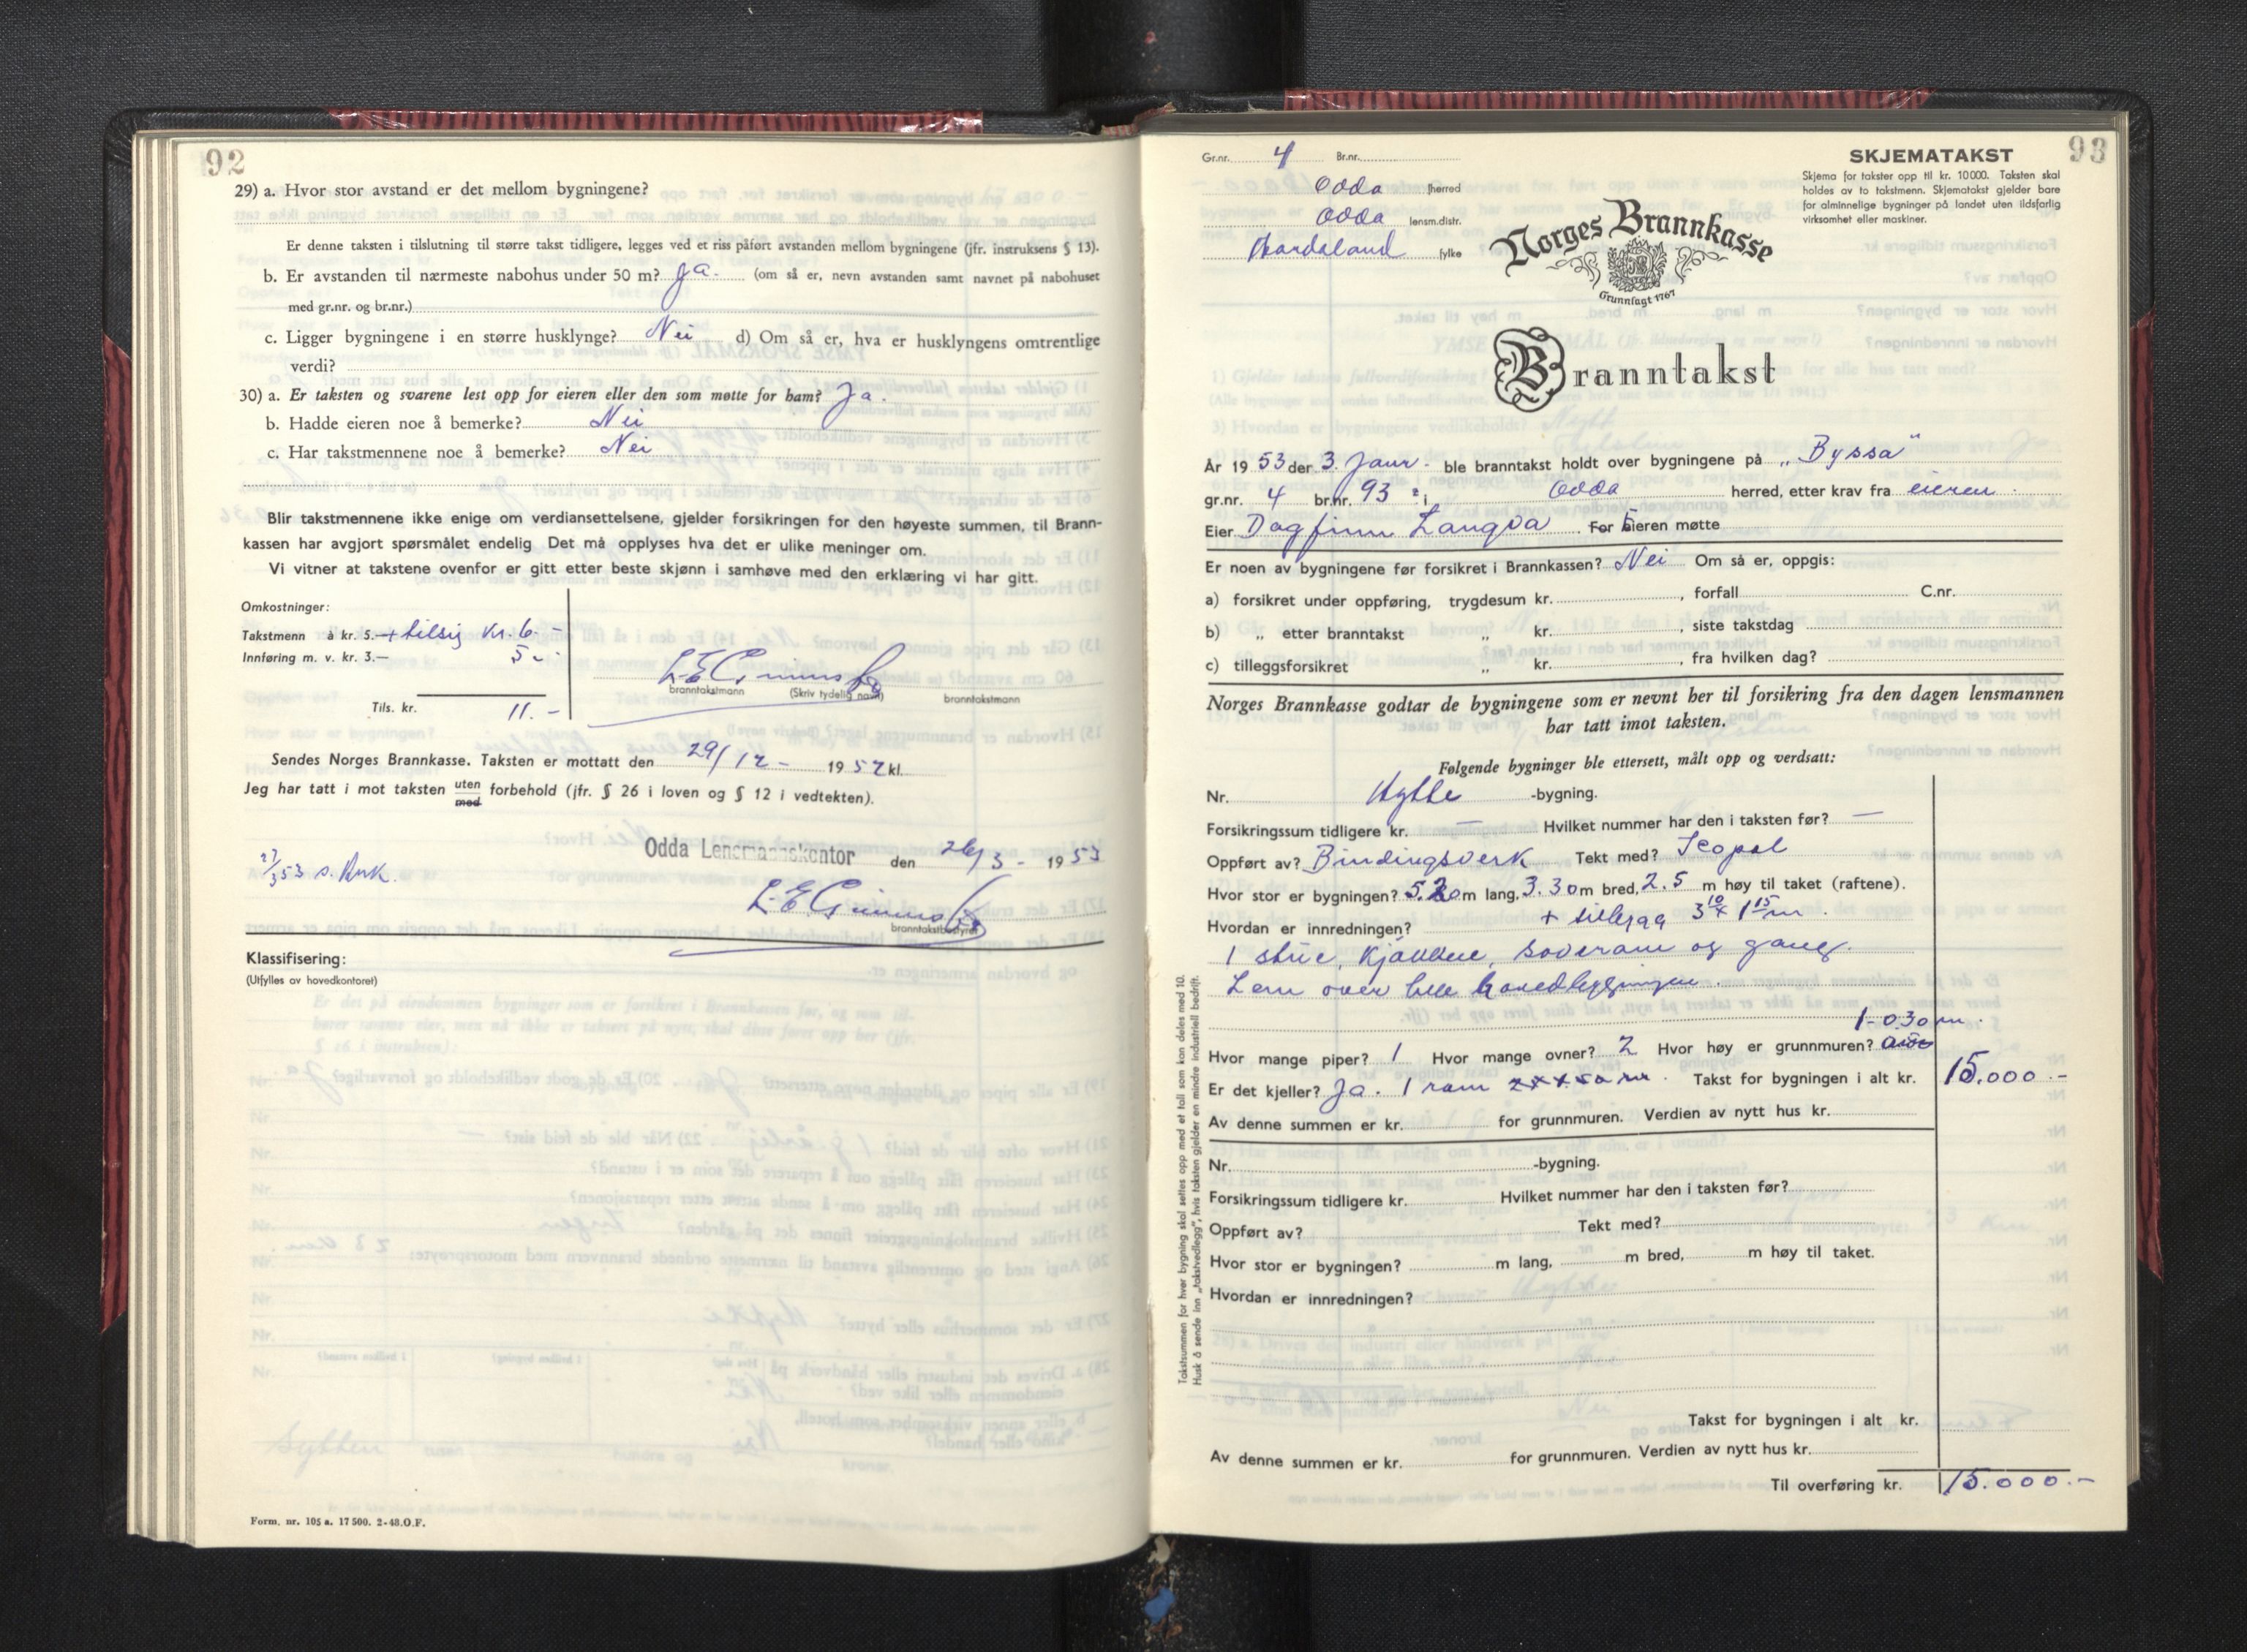 92
29) a. Hvor stor avstand er det mellom bygningene?
Er denne taksten i tilslutning til større takst tidligere, legges ved et riss påført avstanden mellom bygningene (jfr. instruksens § 13).
b. Er avstanden til nærmeste nabohus under 50 m? Ja. (om så er, nevn avstanden samt navnet på nabohuset
med gr.nr. og br.nr.)
c. Ligger bygningene i en større husklynge? Nei d) Om så er, hva er husklyngens omtrentlige
verdi?
30) a. Er taksten og svarene lest opp for eieren eller den som møtte for ham? Ja.
b. Hadde eieren noe å bemerke? Nei
c. Har takstmennene noe å bemerke? Nei
Blir takstmennene ikke enige om verdiansettelsene, gjelder forsikringen for den høyeste summen, til Brann-
kassen har avgjort spørsmålet endelig Det må opplyses hva det er ulike meninger om.
Vi vitner at takstene ovenfor er gitt etter beste skjønn i samhøve med den erklæring vi har gitt.
Omkostninger:
Takstmenn à kr. 5.— + tilsig Kr. 6.-
Innføring m. v. kr. 3.— 5.-
branntakstmann (Skriv tydelig navn) branntakstmann
Tils. kr. 11.-
Sendes Norges Brannkasse. Taksten er mottatt den 29/12 - 1952 kl.
Jeg har tatt i mot taksten uten forbehold (jfr. § 26 i loven og § 12 i vedtekten).
med
Odda Lensmannskontor den 26/3 - 1953
27/3 53 s. Brk.
branntakstbestyrer
Klassifisering:
(Utfylles av hovedkontoret)
Form. nr. 105 a. 17 500. 2-48. O.F.
93
Gr.nr. 4 Br.nr.
Odda herred
Odda lensm.distr.
Hordaland fylke
SKJEMATAKST
Skjema for takster opp til kr. 10 000. Taksten skal
holdes av to takstmenn. Skjematakst gjelder bare
for alminnelige bygninger på landet uten ildsfarlig
virksomhet eller maskiner.
Norges Brannkasse
Grunnlagt 1767
Branntakst
År 1953 der 3. Janur - ble branntakst holdt over bygningene på „Byssa"
gr.nr. 4 br.nr. 93 i Odda herred, etter krav fra eieren.
Eier Dagfinn Langva For Eieren møtte
Er noen av bygningene før forsikret i Brannkassen? Nei Om så er, oppgis:
a) forsikret under oppføring, trygdesum kr. , forfall C.nr.
b) „ etter branntakst „ kr. , siste takstdag
c) tilleggsforsikret „ kr. , fra hvilken dag?
Norges Brannkasse godtar de bygningene som er nevnt her til forsikring fra den dagen lensmannen
har tatt imot taksten.
Følgende bygninger ble ettersett, målt opp og verdsatt:
Nr. Hytte -bygning.
Forsikringssum tidligere kr. — Hvilket nummer har den i taksten før? —
Oppført av? Bindingsverk Tekt med? Icopal
Hvor stor er bygningen? 5.20 m lang, 3.30 m bred, 2.5 m høy til taket (raftene).
Hvordan er innredningen? + tillegg 3 10 x 1 15 m.
1 stue, Kjøkken, soverom og gang.
Lem over hele hovedbygningen.
1-0.30 m.
Hvor mange piper? 1 Hvor mange ovner? 2 Hvor høy er grunnmuren?
Er det kjeller? Ja. 1 rom Takst for bygningen i alt kr. 15.000.-
Av denne summen er kr. for grunnmuren. Verdien av nytt hus kr.
Nr. -bygning.
Forsikringssum tidligere kr. Hvilket nummer har den i taksten før?
Oppført av? Tekt med?
Hvor stor er bygningen? m lang, m bred, m høy til taket.
Hvordan er innredningen?
Takst for bygningen i alt kr.
Av denne summen er kr. for grunnmuren. Verdien av nytt hus kr.
Til overføring kr. 15.000.-
Takstsummen for hver bygning skal settes opp med et tall som kan deles med 10.
Husk å sende inn „takstvedlegg", hvis taksten gjelder en mindre industriell bedrift.